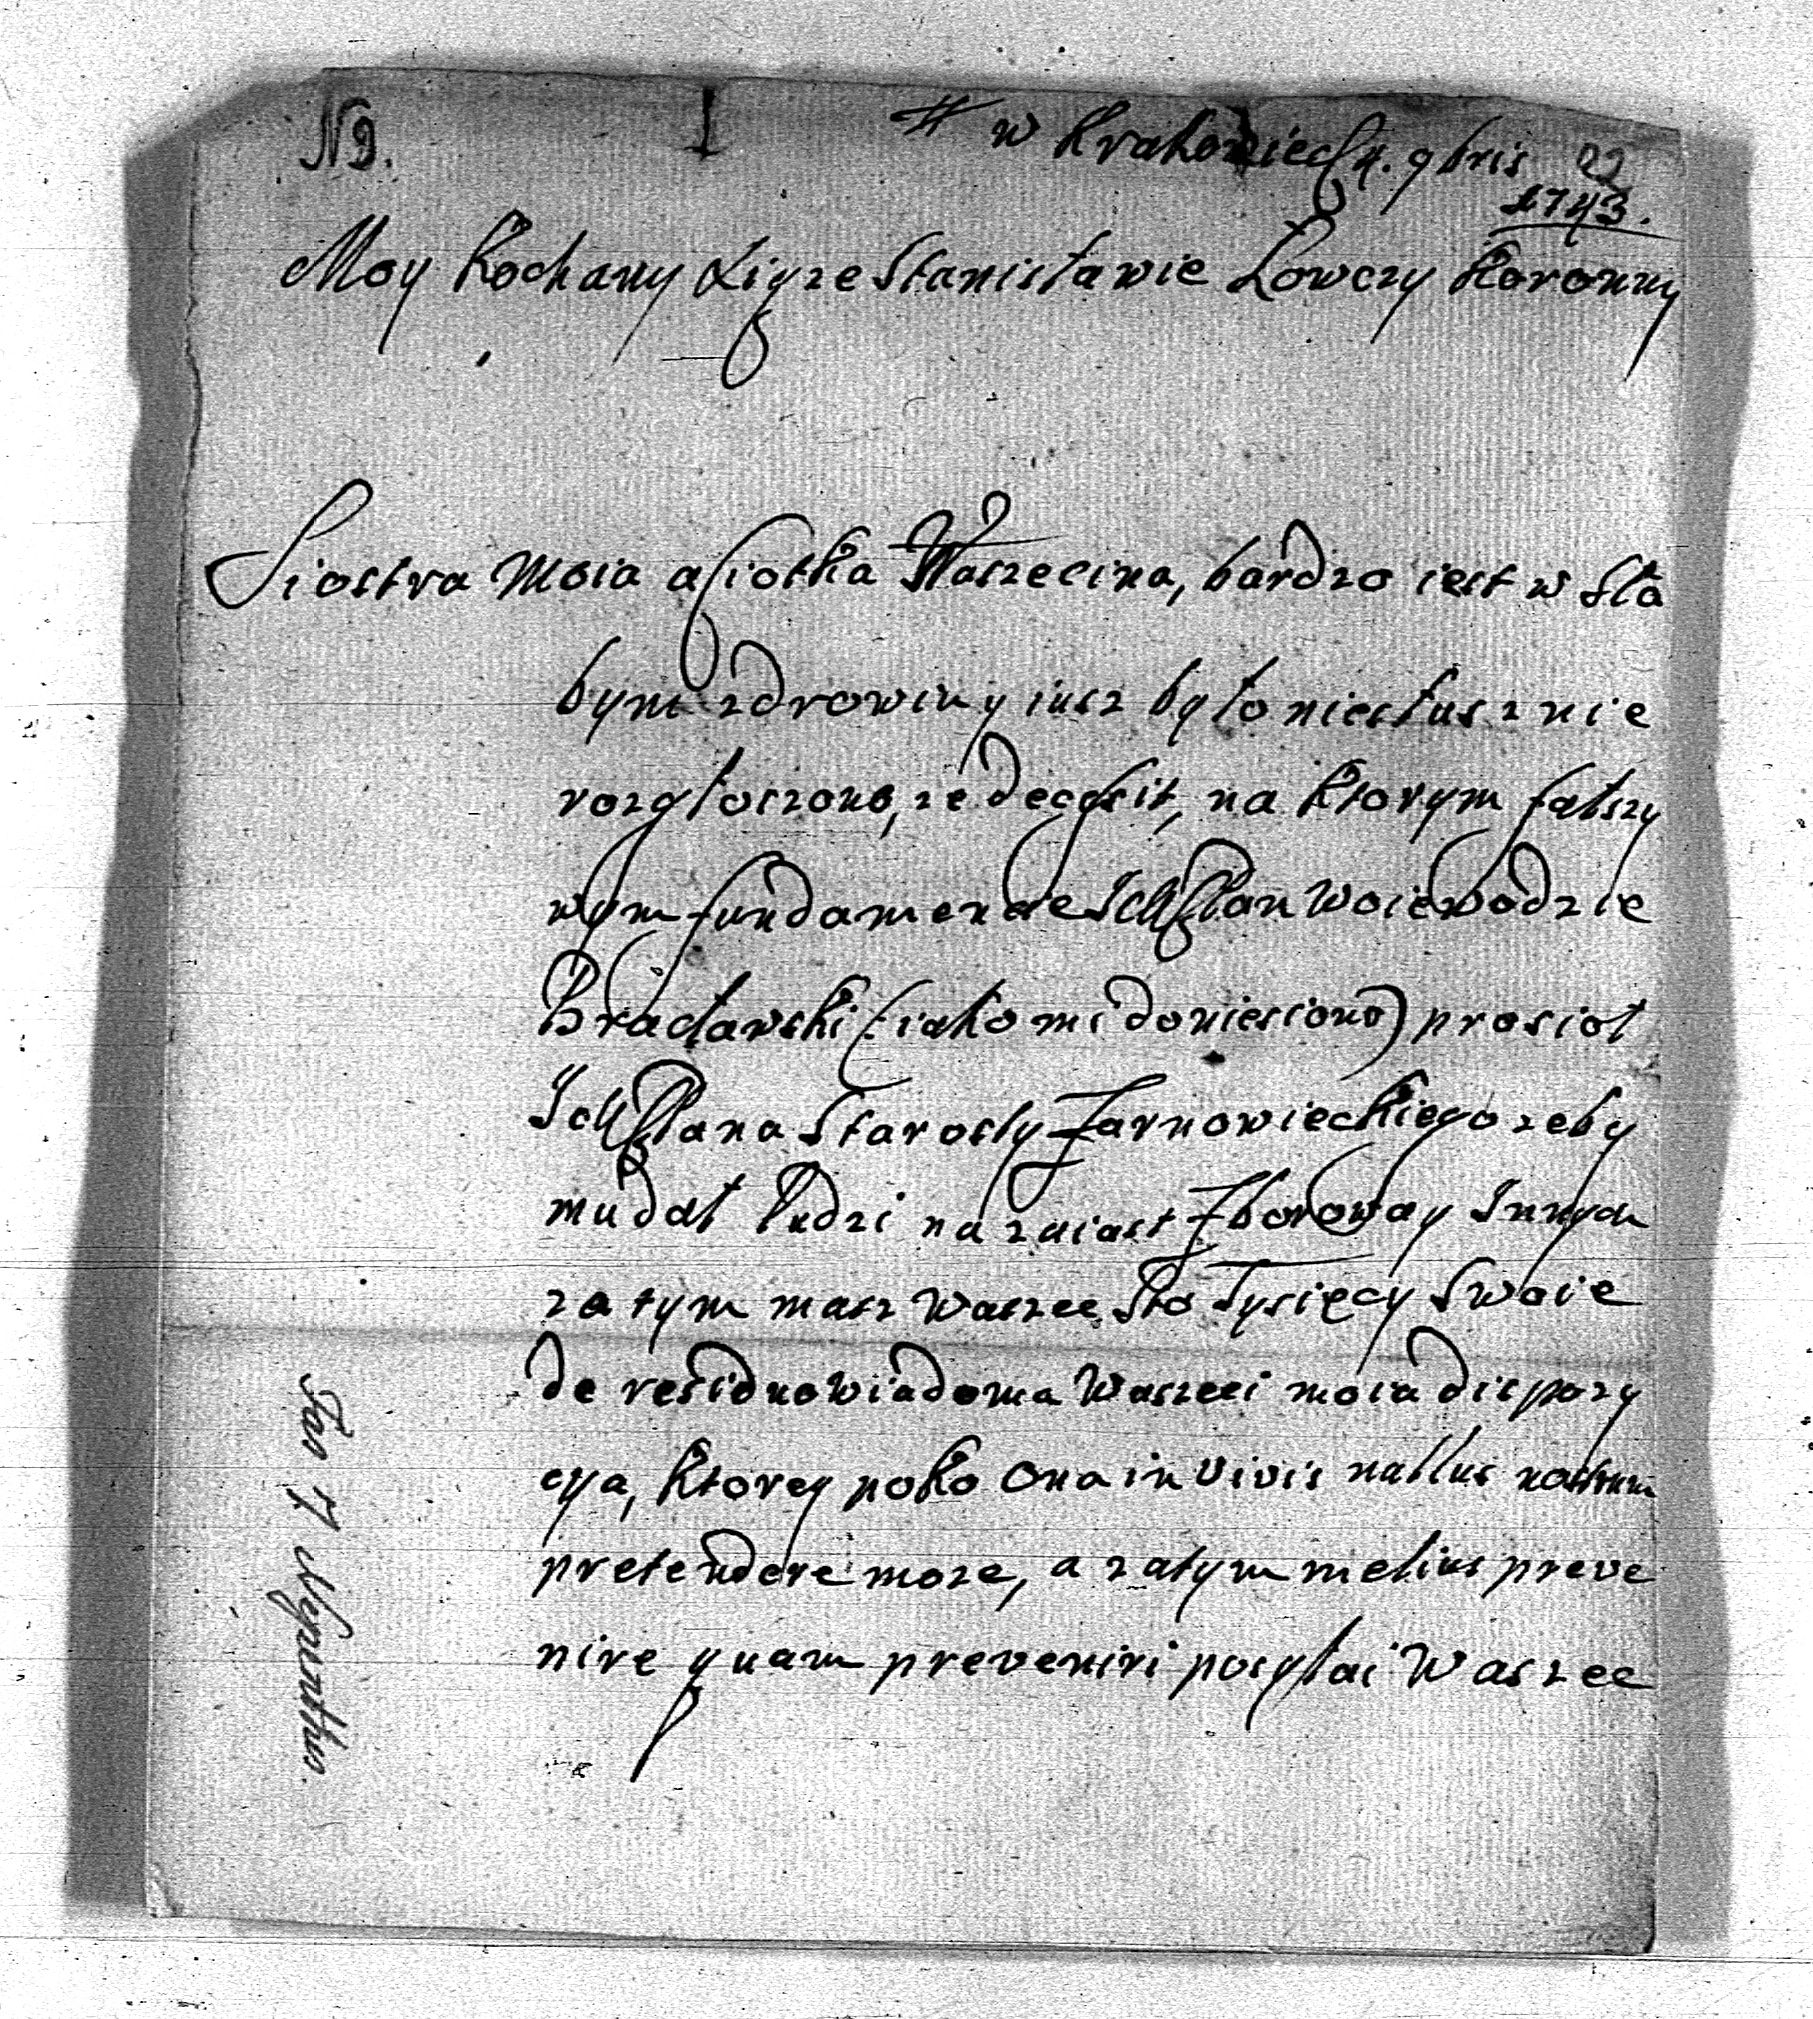 N 9.
w Krakowiecz 4. 9bris
1743.
Moy Kochany Xięze Stanisławie Łowczy Koronny
Siostra Moia a Ciotka Waszecina, bardzo iest w Sła
bym zdrowiu y iusz było niesłusznie
rozgłoszono, ze decessit, na ktorym fałszy
wym fundamencie JchMPan Woiewodzic
Bracławski (iako mi doniesiono) prosioł
JchMPana Starosty Zarnowieckiego zeby
mu dał ludzi na zaiast Zborowa y Innych
za tym masz Waszec Sto Tysięcy Swoie
de residuo wiadoma Waszeci moia dispozy
cya, ktorey poko Ona in vivis nullus nostrum
pretendere moze, a zatym melius preve
nire quam preveniri posyłai Waszec